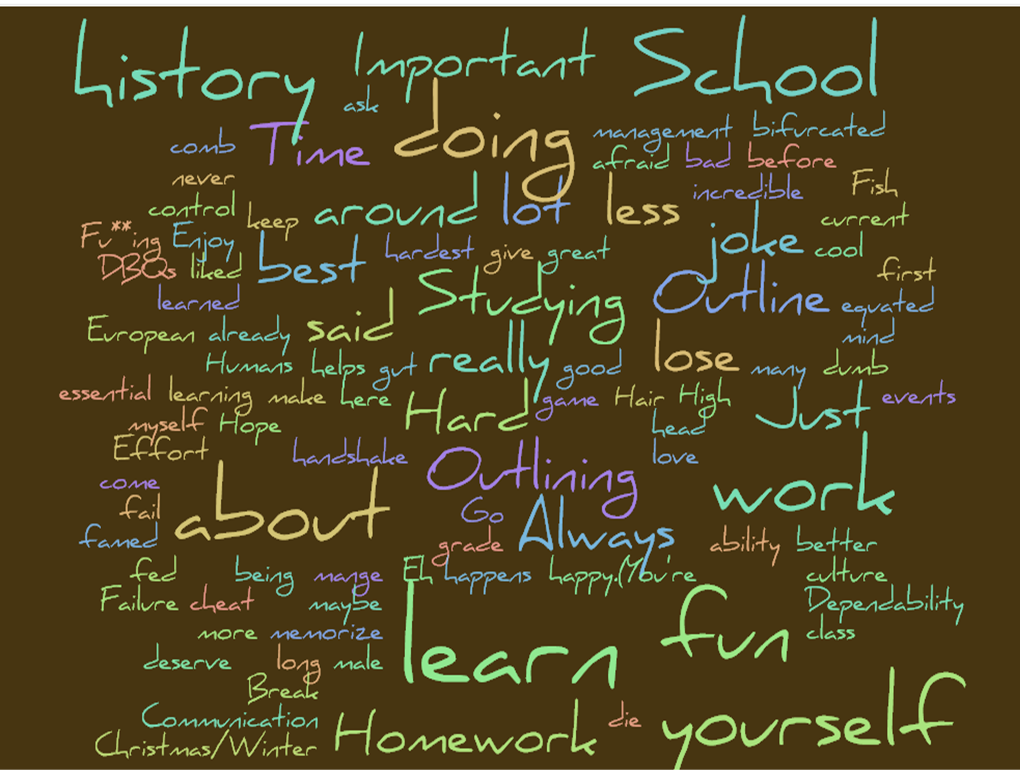 history Important School
ask
comb Time doing management bifurcated
afraid bad before
never incredible Fish
control keep around lot less current
Fu**ing Enjoy joke cool
DBQs liked best hardest give great first
learned Studying Outline equated
European already said mind
Humans helps gut really good lose many dumb
essential learning make here Hard game Hair High Just events
myself Hope head
Effort handshake Outlining love
come Go work
fail about Always
famed grade ability better
fed being mange Eh happens happy.(You're culture
Failure cheat maybe Dependability
more memorize learn fun class
deserve long male
Break
Communication Homework die yourself
Christmas/Winter